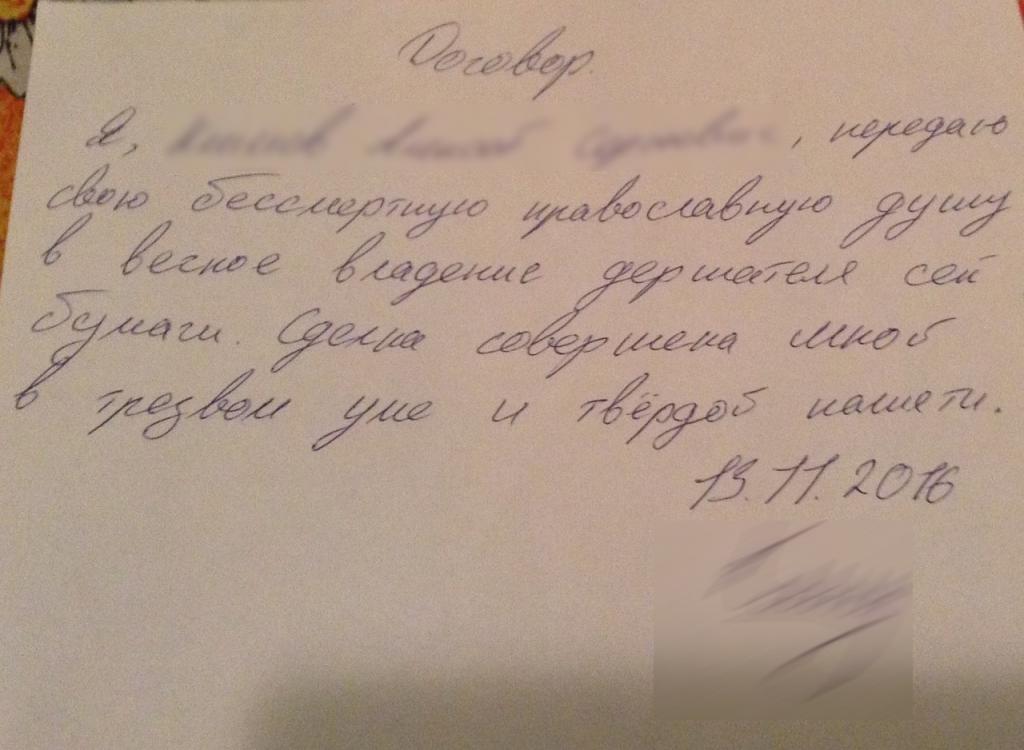 Договор.
Я, , передаю
свою бессмертную православную душу
в вечное владение держателя сей
бумаги. Сделка совершена мной
в трезвом уме и твёрдой памяти.
13.11.2016